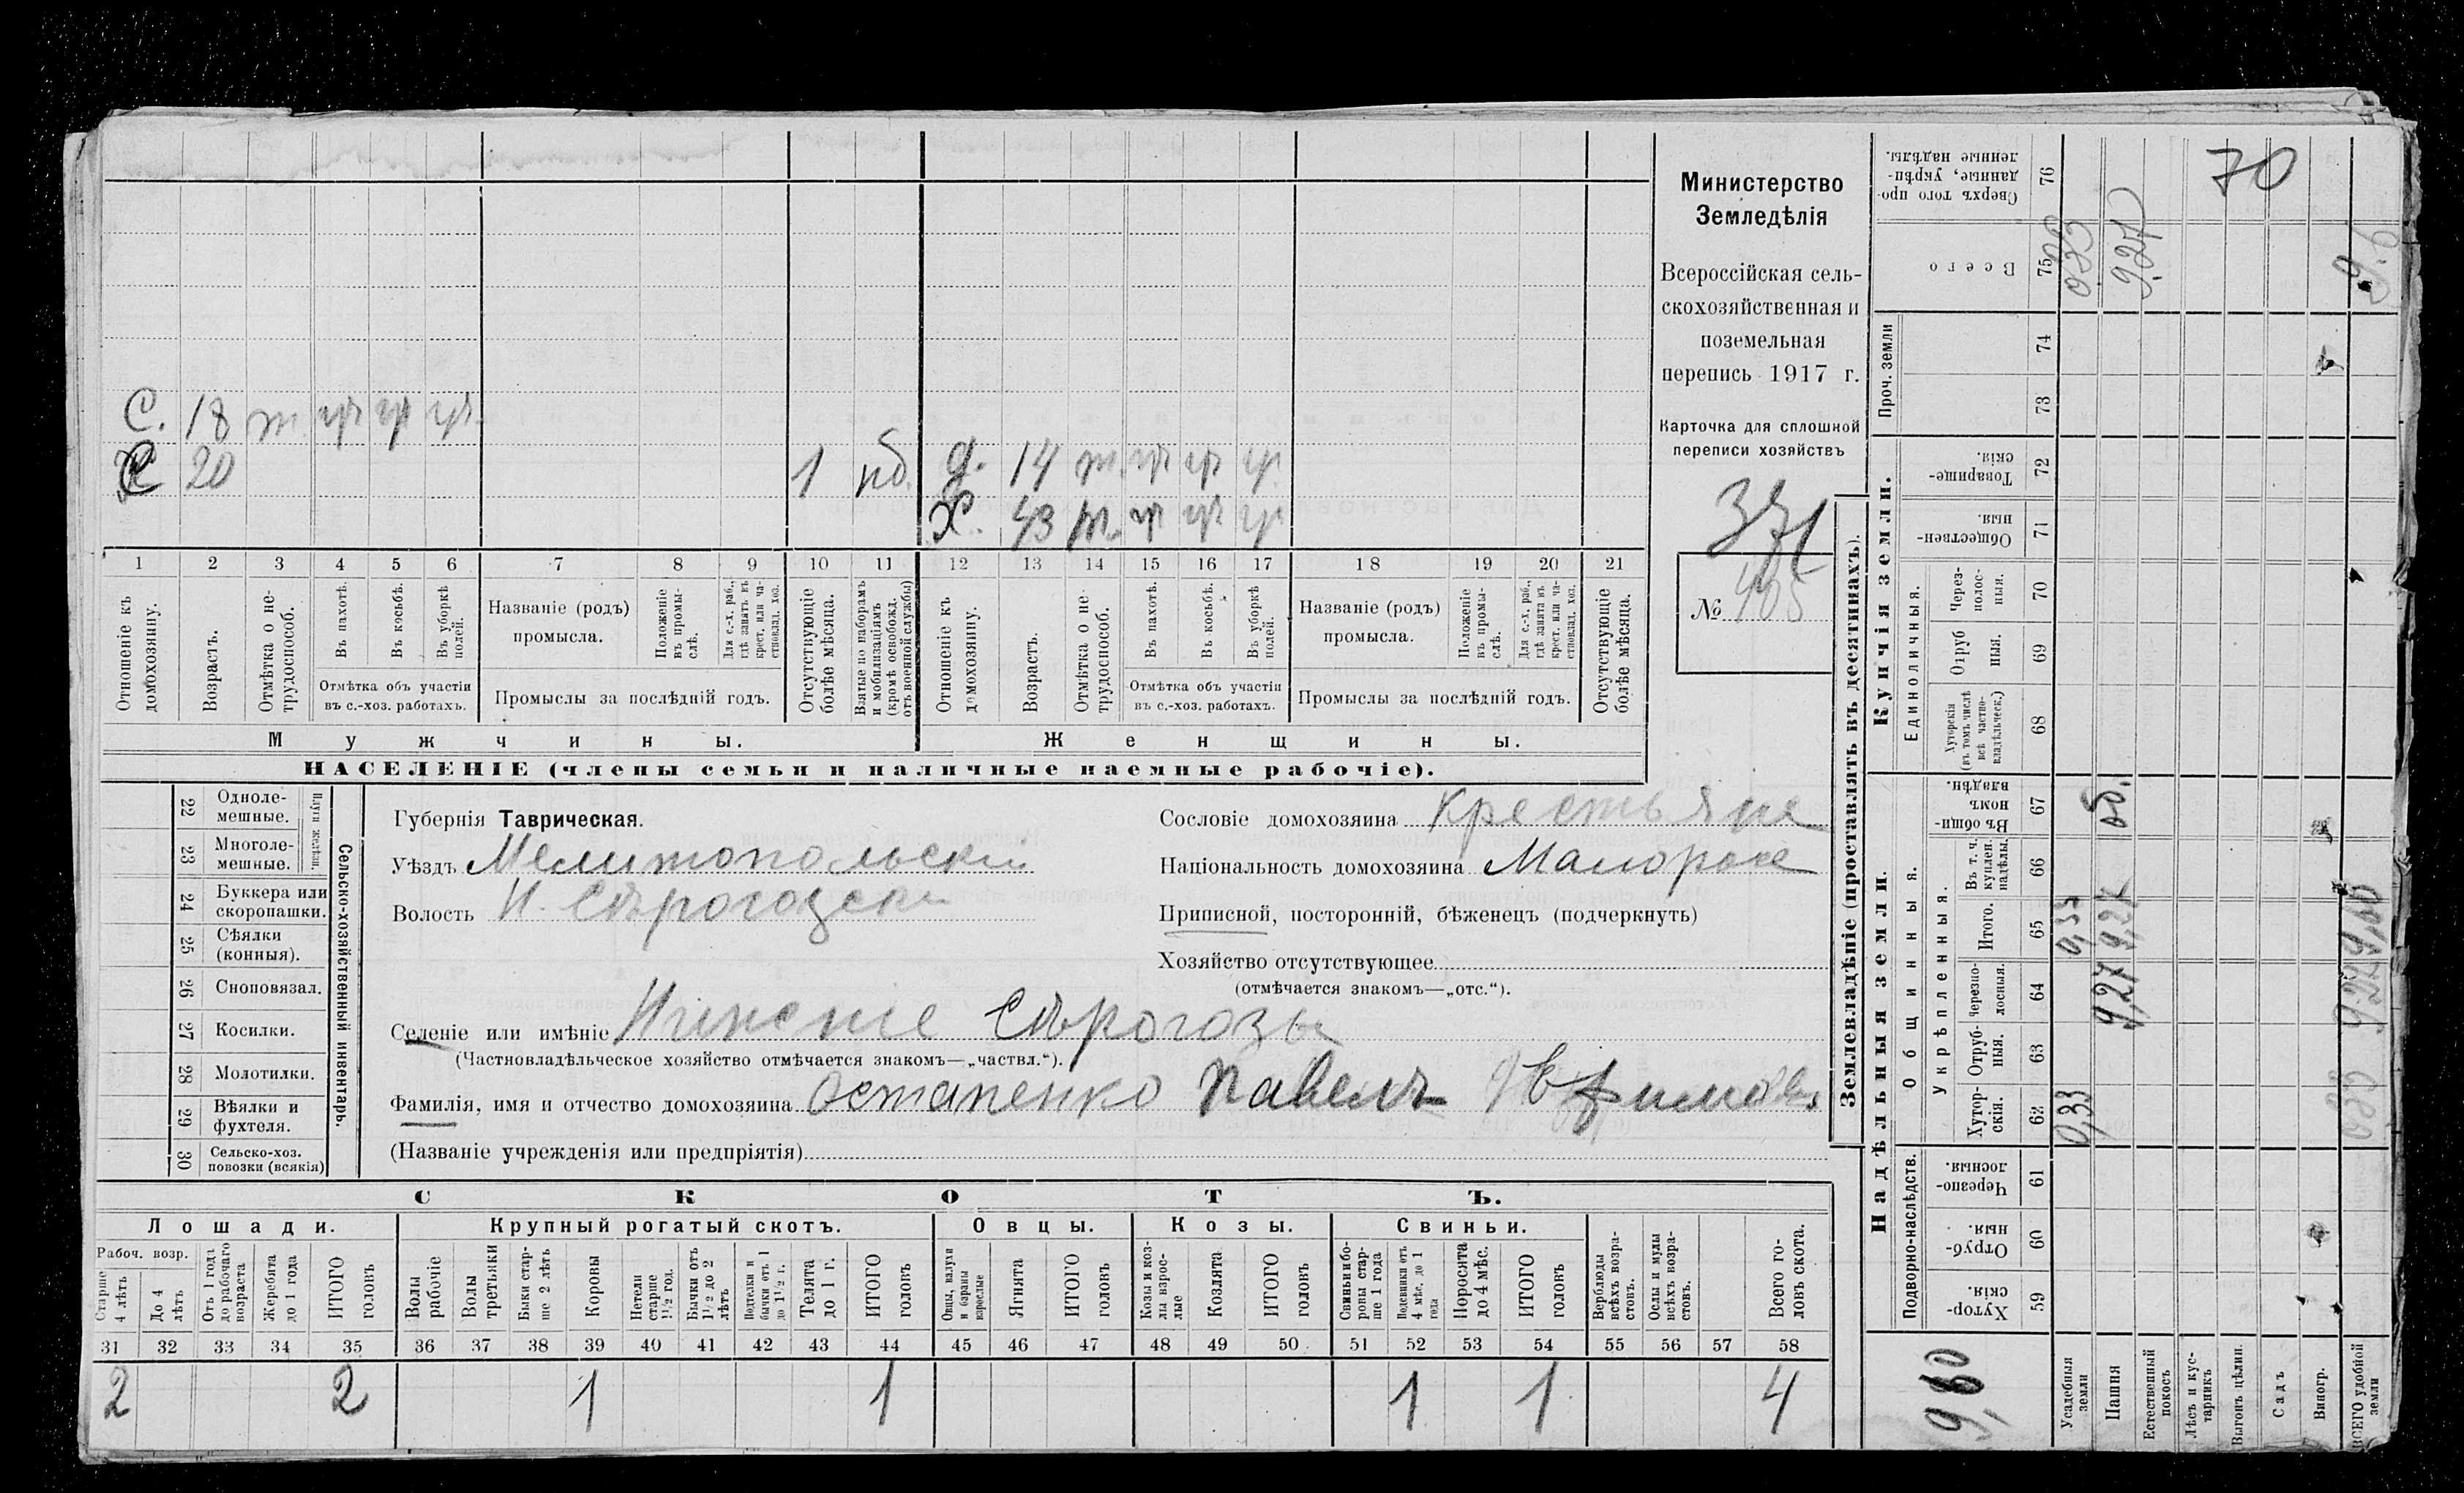 С. 18 т. уч уч уч
С 20 1 пб. д. 14 т. уч уч уч
Х. 43 т. уч уч уч
1 2 3 4 5 6 7 8 9 10 11 12 13 14 15 16 17 18 19 20 21
Отношеніе къ домохозяину.
Возрастъ.
Отмѣтка о не-трудоспособ.
Въ пахотѣ.
Въ косьбѣ.
Въ уборкѣ полей.
Отмѣтка объ участіи въ с.-хоз. работахъ.
Названіе (родъ) промысла.
Положеніе въ промы-слѣ.
Для с.-х. раб., гдѣ занятъ въ крест. или ча-стновлад. хоз.
Промыслы за послѣдній годъ.
Отсутствующіе болѣе мѣсяца.
Взятые по наборамъ и мобилизаціямъ (кромѣ освобожд. отъ военной службы)
Отношеніе къ домохозяину.
Возрастъ.
Отмѣтка о не-трудоспособ.
Въ пахотѣ.
Въ косьбѣ.
Въ уборкѣ полей.
Отмѣтка объ участіи въ с.-хоз. работахъ.
Названіе (родъ) промысла.
Положеніе въ промы-слѣ.
Для с.-х. раб., гдѣ занята въ крест. или ча-стновлад. хоз.
Промыслы за послѣдній годъ.
Отсутствующіе болѣе мѣсяца.
Мужчины. Женщины.
НАСЕЛЕНІЕ (члены семьи и наличные наемные рабочіе).
Министерство
Земледѣлія
Всероссійская сель-
скохозяйственная и
поземельная
перепись 1917 г.
Карточка для сплошной
переписи хозяйствъ
371
№ 405
22 Одноле-мешные.
23 Многоле-мешные.
24 Буккера или скоропашки.
25 Сѣялки (конныя).
26 Сноповязал.
27 Косилки.
28 Молотилки.
29 Вѣялки и фухтеля.
30 Сельско-хоз. повозки (всякія)
Сельско-хозяйственный инвентарь.
Губернія Таврическая.
Уѣздъ Мелитопольскій
Волость Н. Сѣрогозская
Сословіе домохозяина крестьяне
Національность домохозяина Малоросс
Приписной, посторонній, бѣженецъ (подчеркнуть)
Хозяйство отсутствующее
(отмѣчается знакомъ—„отс.“).
Селеніе или имѣніе Нижніе Сѣрогозы
(Частновладѣльческое хозяйство отмѣчается знакомъ—„частвл.“).
Фамилія, имя и отчество домохозяина Остапенко Павелъ
(Названіе учрежденія или предпріятія)
СКОТЪ.
Лошади. Крупный рогатый скотъ. Овцы. Козы. Свиньи.
Рабоч. возр.
Старше 4 лѣтъ
До 4 лѣтъ
Отъ 1 года до рабочаго возраста
Жеребята до 1 года
ИТОГО головъ
Волы рабочіе
Волы третьяки
Быки стар-ше 2 лѣтъ
Коровы
Нетели старше 1½ год.
Бычки отъ 1½ до 2 лѣтъ
Подтелки и бычки отъ 1 до 1½ г.
Телята до 1 г.
ИТОГО головъ
Овцы, валухи и бараны взрослые
Ягнята
ИТОГО головъ
Козы и коз-лы взрос-лые
Козлята
ИТОГО головъ
Свиньи и бо-ровы стар-ше 1 года
Подсвинки отъ 4 мѣс. до 1 года
Поросята до 4 мѣс.
ИТОГО головъ
Верблюды всѣхъ возра-стовъ.
Ослы и мулы всѣхъ возра-стовъ.
Всего го-ловъ скота.
31 32 33 34 35 36 37 38 39 40 41 42 43 44 45 46 47 48 49 50 51 52 53 54 55 56 57 58
2 2 1 1 1 1 4
Землевладѣніе (проставлять въ десятинахъ).
Надѣльныя земли. Купчія земли. Проч. земли
Подворно-наслѣдств. Общинныя. Укрѣпленныя. Единоличныя.
Сверхъ того про-данные, укрѣп-ленные надѣлы. 76 70
Всего 75 9,27
74
73
Товарище-скія. 72
Обществен-ныя. 71
Через-полос-ныя. 70
Отруб ныя. 69
Хуторскія (въ томъ числѣ всѣ частно-владѣльческ.) 68
Въ общи-номъ владѣн. 67 об.
Въ т. ч. куплен. надѣлы. 66
Итого. 65 0,33 9,27
Черезпо-лосныя. 64 9,27
Отруб-ныя. 63
Хутор-скія. 62 0,33
Черезпо-лосныя. 61
Отруб-ныя. 60
Хутор-скія. 59
9,60
Усадебныя земли
Пашня
Естественный покосъ
Лѣсъ и кус-тарникъ
Выгонъ цѣлин.
Садъ
Виногр.
ВСЕГО удобной земли